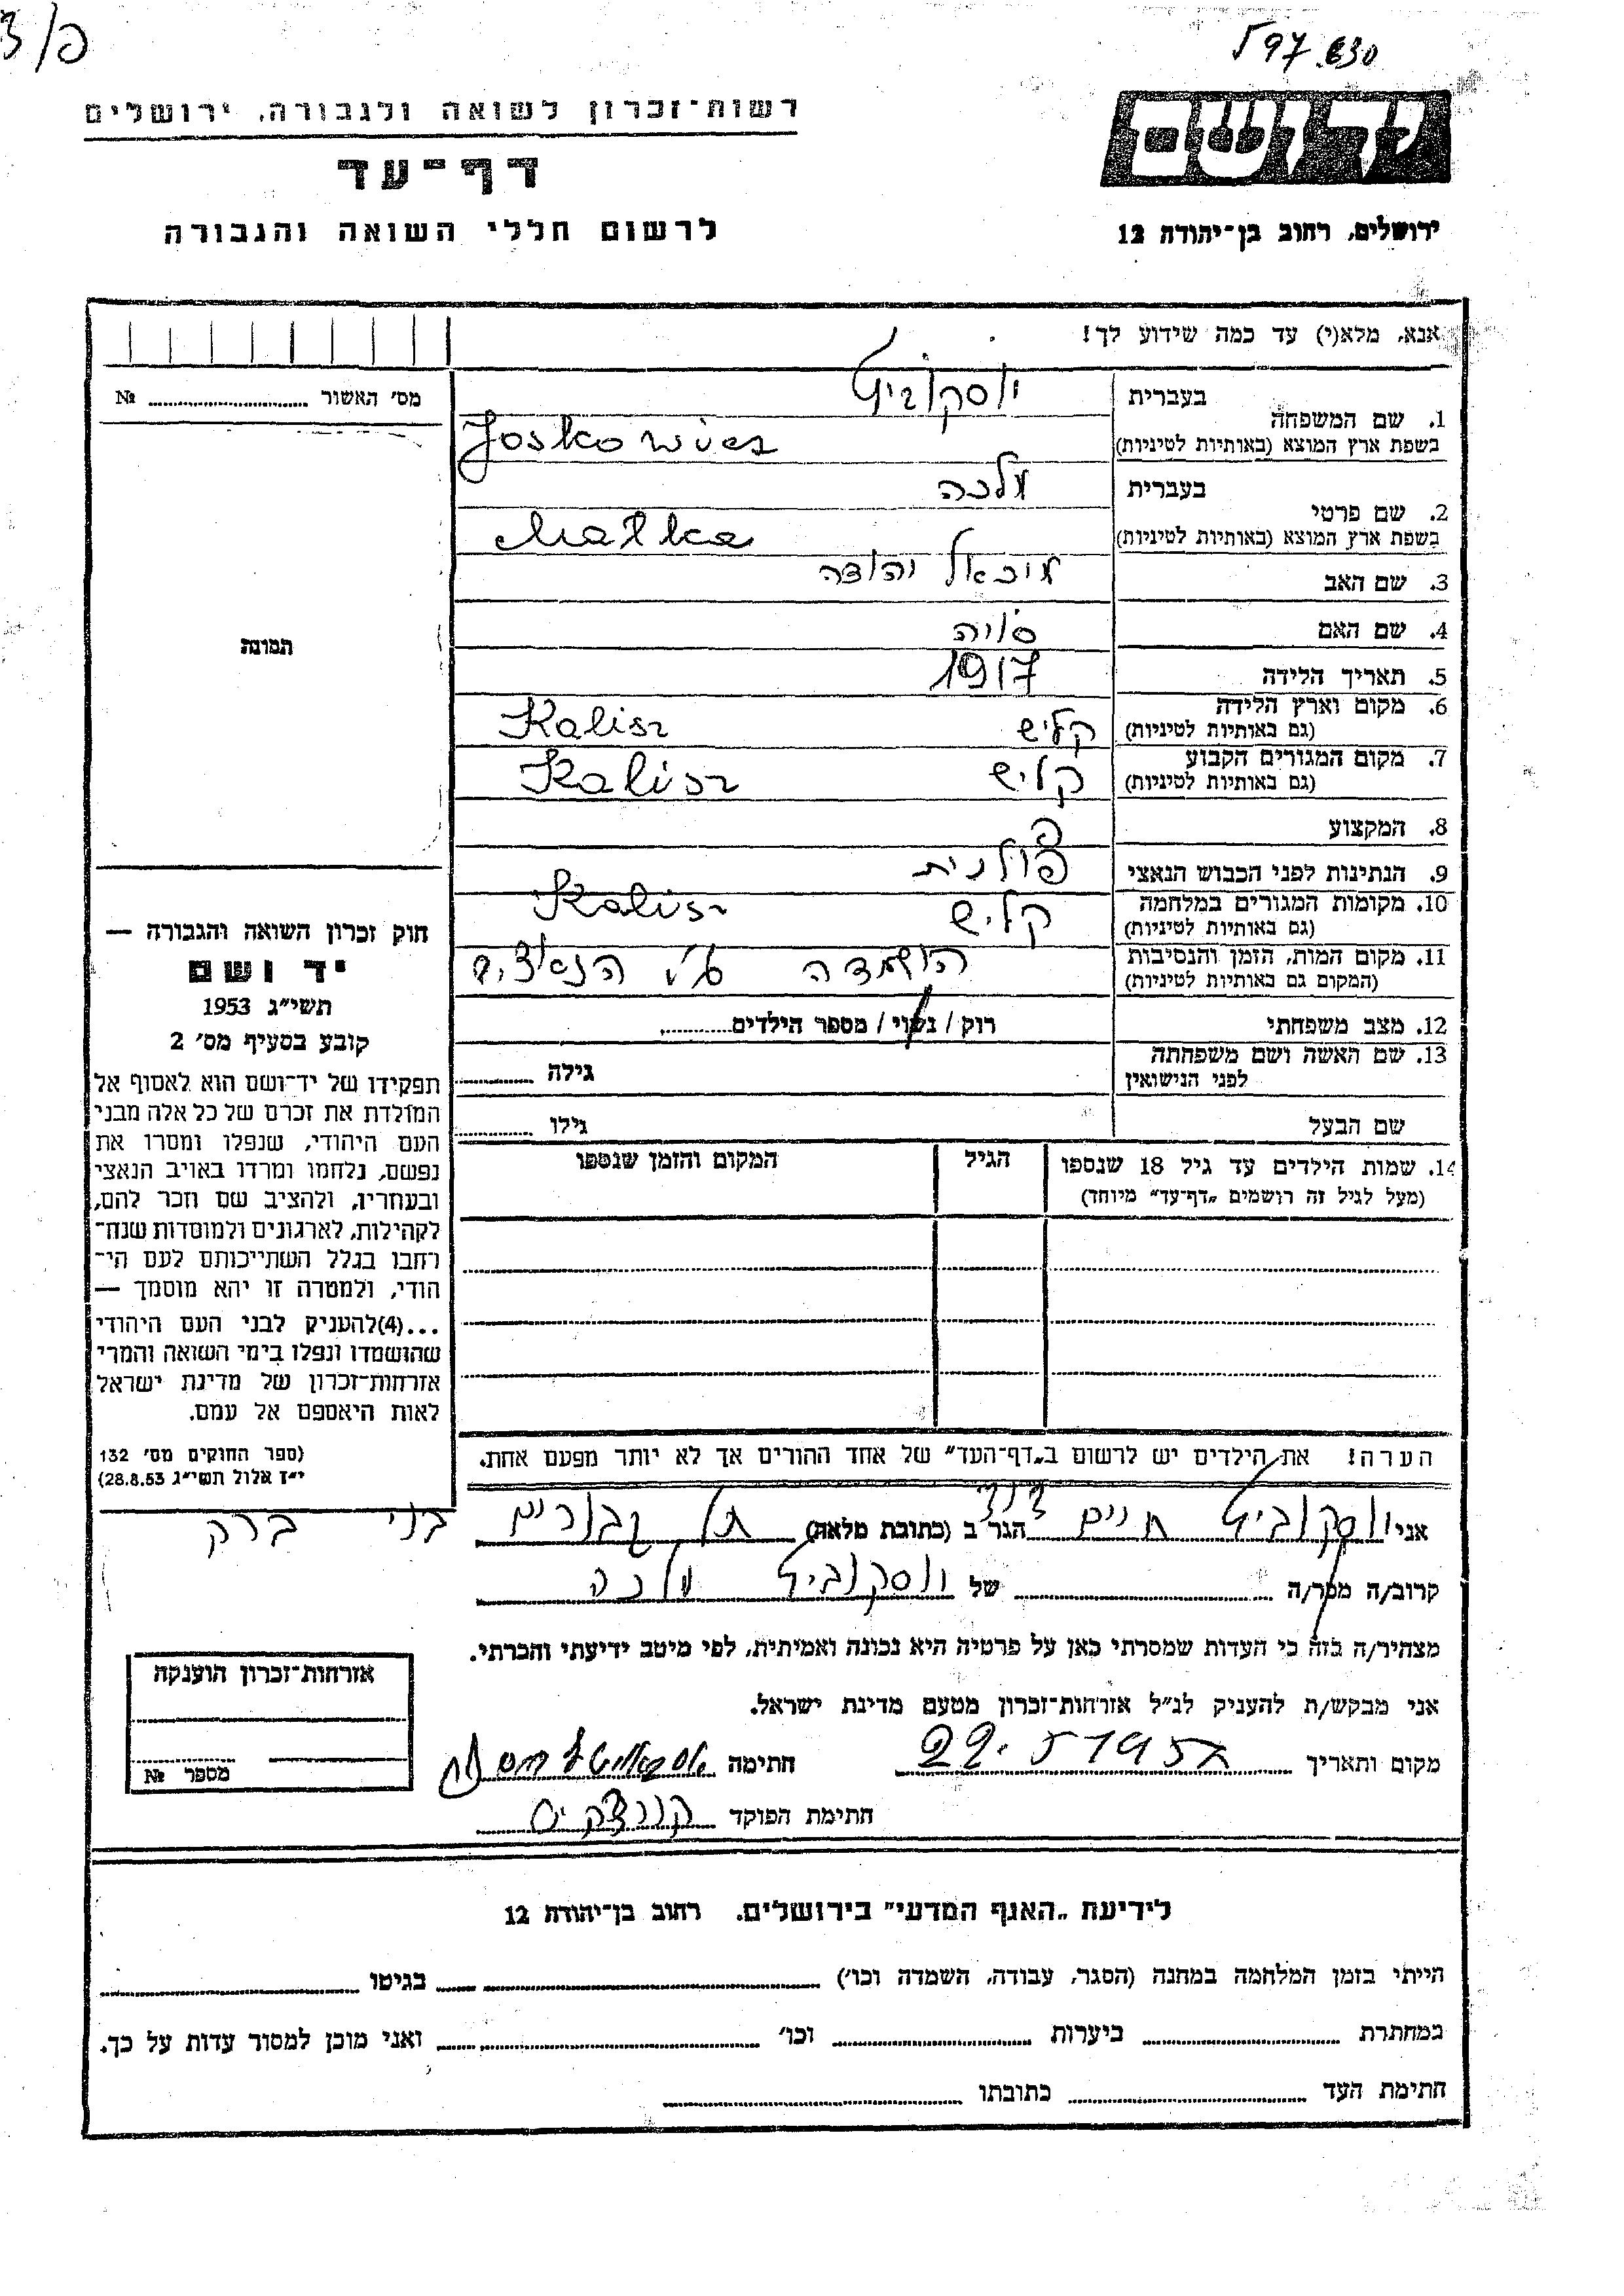 597.630
רשות־זכרון לשואה ולגבורה, ירושלים
יד ושם
דף־עד
לרשום חללי השואה והגבורה
ירושלים, רחוב בן־יהודה 12
אנא, מלא(י) עד כמה שידוע לך!
מס' האשור ............ №
תמונה
1. שם המשפחה
בעברית יוסקוביץ
בשפת ארץ המוצא (באותיות לטיניות) Joskowicz
2. שם פרטי
בעברית מלכה
בשפת ארץ המוצא (באותיות לטיניות) Malka
3. שם האב מיכאל יהודה
4. שם האם
5. תאריך הלידה 1917
6. מקום וארץ הלידה קליש Kalisz
(גם באותיות לטיניות)
7. מקום המגורים הקבוע קליש Kalisz
(גם באותיות לטיניות)
8. המקצוע
9. הנתינות לפני הכבוש הנאצי פולנית
10. מקומות המגורים במלחמה קליש Kalisz
(גם באותיות לטיניות)
11. מקום המות, הזמן והנסיבות הושמדה ע"י הנאצים
(המקום גם באותיות לטיניות)
12. מצב משפחתי רוק / נשוי / מספר הילדים............
13. שם האשה ושם משפחתה גילה ............
לפני הנישואין
שם הבעל גילו ............
14. שמות הילדים עד גיל 18 שנספו הגיל המקום והזמן שנספו
(מעל לגיל זה רושמים „דף־עד" מיוחד)
הערה! את הילדים יש לרשום ב„דף־העד" של אחד ההורים אך לא יותר מפעם אחת.
חוק זכרון השואה והגבורה —
יד ושם
תשי"ג 1953
קובע בסעיף מס' 2
תפקידו של יד־ושם הוא לאסוף אל
המולדת את זכרם של כל אלה מבני
העם היהודי, שנפלו ומסרו את
נפשם, נלחמו ומרדו באויב הנאצי
ובעוזריו, ולהציב שם וזכר להם,
לקהילות, לארגונים ולמוסדות שנח־
רבו בגלל השתייכותם לעם הי־
הודי, ולמטרה זו יהא מוסמך —
...(4)להעניק לבני העם היהודי
שהושמדו ונפלו בימי השואה והמרי
אזרחות־זכרון של מדינת ישראל
לאות היאספם אל עמם.
(ספר החוקים מס' 132
י"ז אלול תשי"ג 28.8.53)
אני יוסקוביץ חיים דוד הגר ב (כתובת מלאה) תל גבורים בני ברק
קרוב/ה מכר/ה ............ של יוסקוביץ מלכה
מצהיר/ה בזה כי העדות שמסרתי כאן על פרטיה היא נכונה ואמיתית, לפי מיטב ידיעתי והכרתי.
אני מבקש/ת להעניק לנ"ל אזרחות־זכרון מטעם מדינת ישראל.
מקום ותאריך 22.5 195 חתימה
חתימת הפוקד
אזרחות־זכרון הוענקה
מספר №
לידיעת „האגף המדעי" בירושלים, רחוב בן־יהודה 12
הייתי בזמן המלחמה במחנה (הסגר, עבודה, השמדה וכו') ............ בגיטו ............
במחתרת ............ ביערות ............ וכו' ............ ואני מוכן למסור עדות על כך.
חתימת העד ............ כתובתו ............